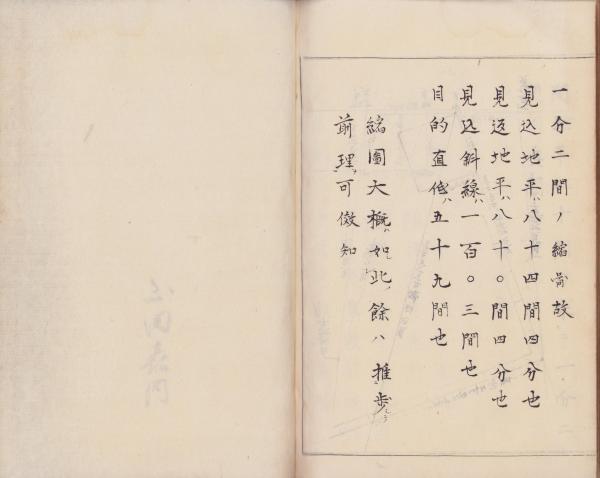 一分二間ノ縮啚故
見込地平ハ八十四間四分也
見返地平ハ八十〇間四分也
見込斜線ハ一百〇三間也
目的直低ハ五十九間也
縮圖大概ハ如此ノ餘ハ推歩
前理可倣知